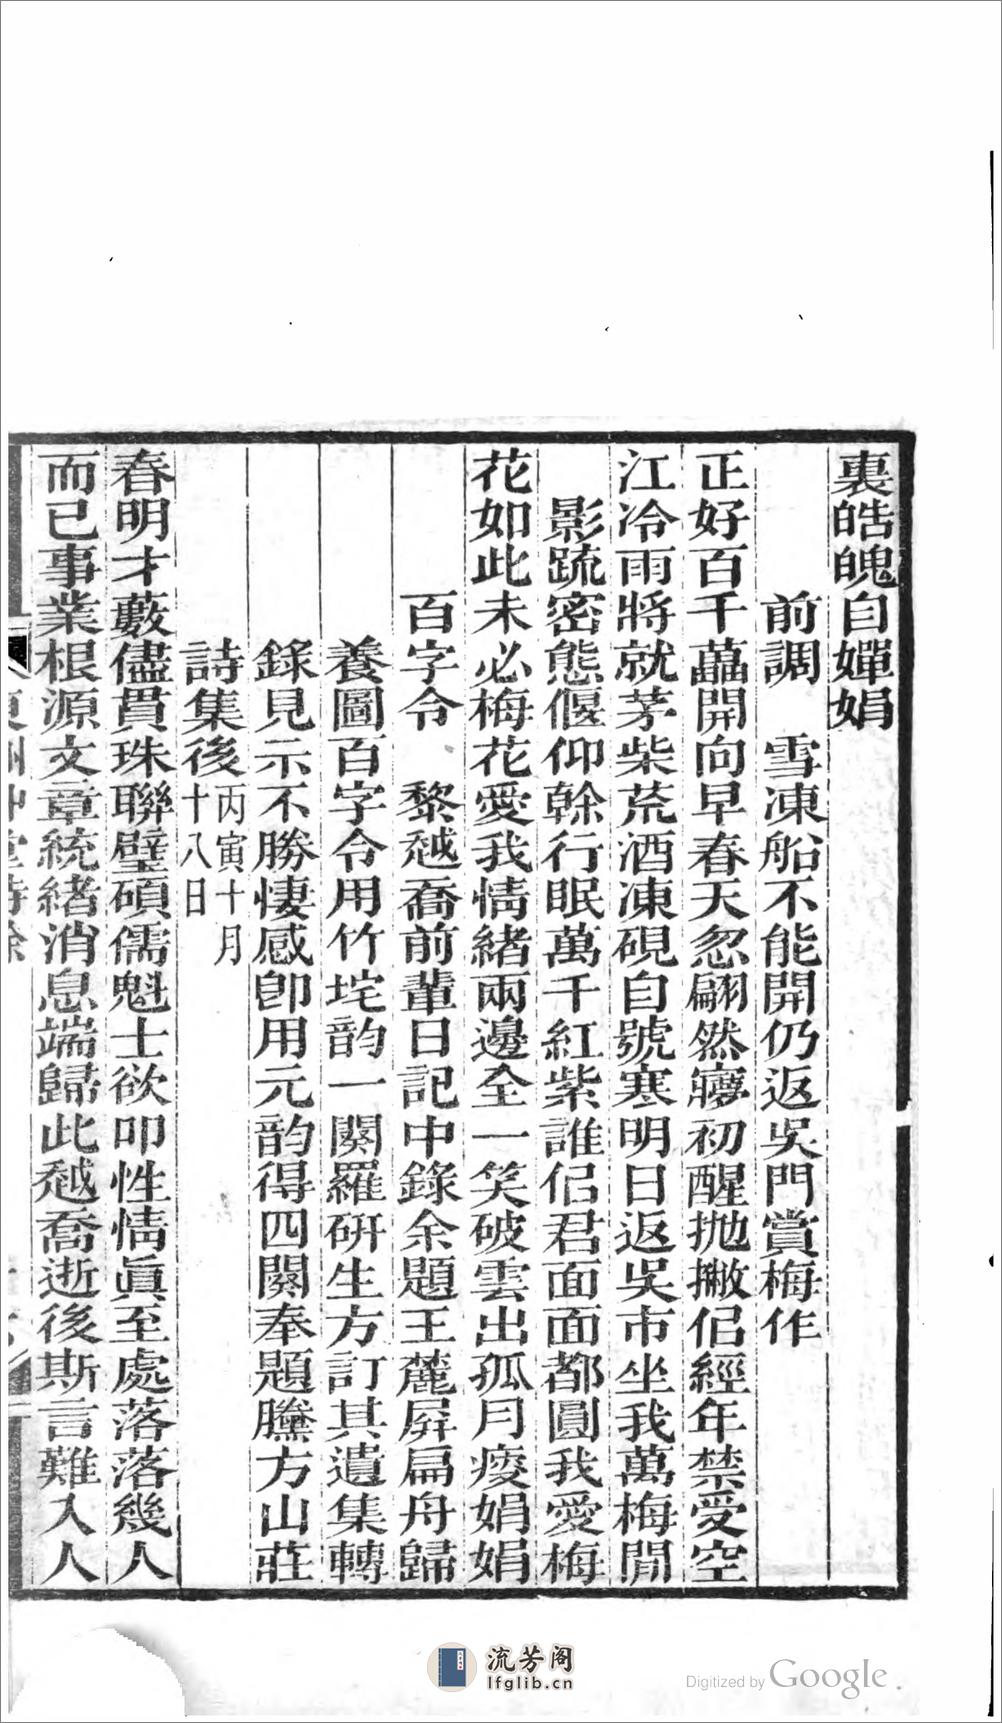 裏皓魄自嬋娟
前調　雪凍船不能開仍返吳門賞梅作
正好百千蘂開向早春天忽翩然夢初醒拋撇侶經年禁受空
江冷雨將就茅柴荒酒凍硯自號寒明日返吳市坐我萬梅閒
影疏密態偃仰幹行眠萬千紅紫誰侶君面面都圓我愛梅
花如此未必梅花愛我情緒兩邊全一笑破雲出孤月瘦娟娟
百字令　黎越喬前輩日記中錄余題王麓屏扁舟歸
養圖百字令用竹垞韵一闋羅研生方訂其遺集轉
錄見示不勝悽感卽用元韵得四闋奉題黱方山莊
詩集後丙寅十月
十八日
春明才藪儘貫珠聯璧碩儒魁士欲叩性情眞至處落落幾人
而已事業根源文章統緒消息端歸此越喬逝後斯言難入人
東洲艸堂詩餘
流芳阁
lfglib.cn
Digitized by Google